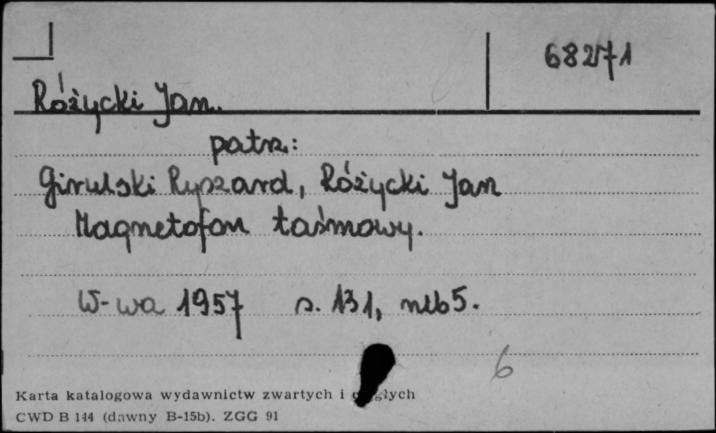 68271
Różycki Jan.
patrz:
Girulski Ryszard, Różycki Jan
Magnetofon taśmowy.
W-wa 1957 s. 131, nlb 5.
6
Karta katalogowa wydawnictw zwartych i
CWD B 144 (dawny B-15b). ZGG 91